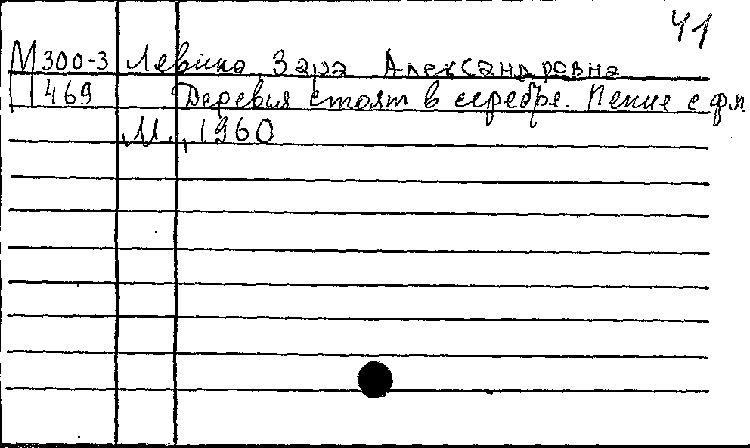 41
М 300-3 Левина, Зара Александровна
469 Деревья стоят в серебре. Пение с ф.п
М., 1960